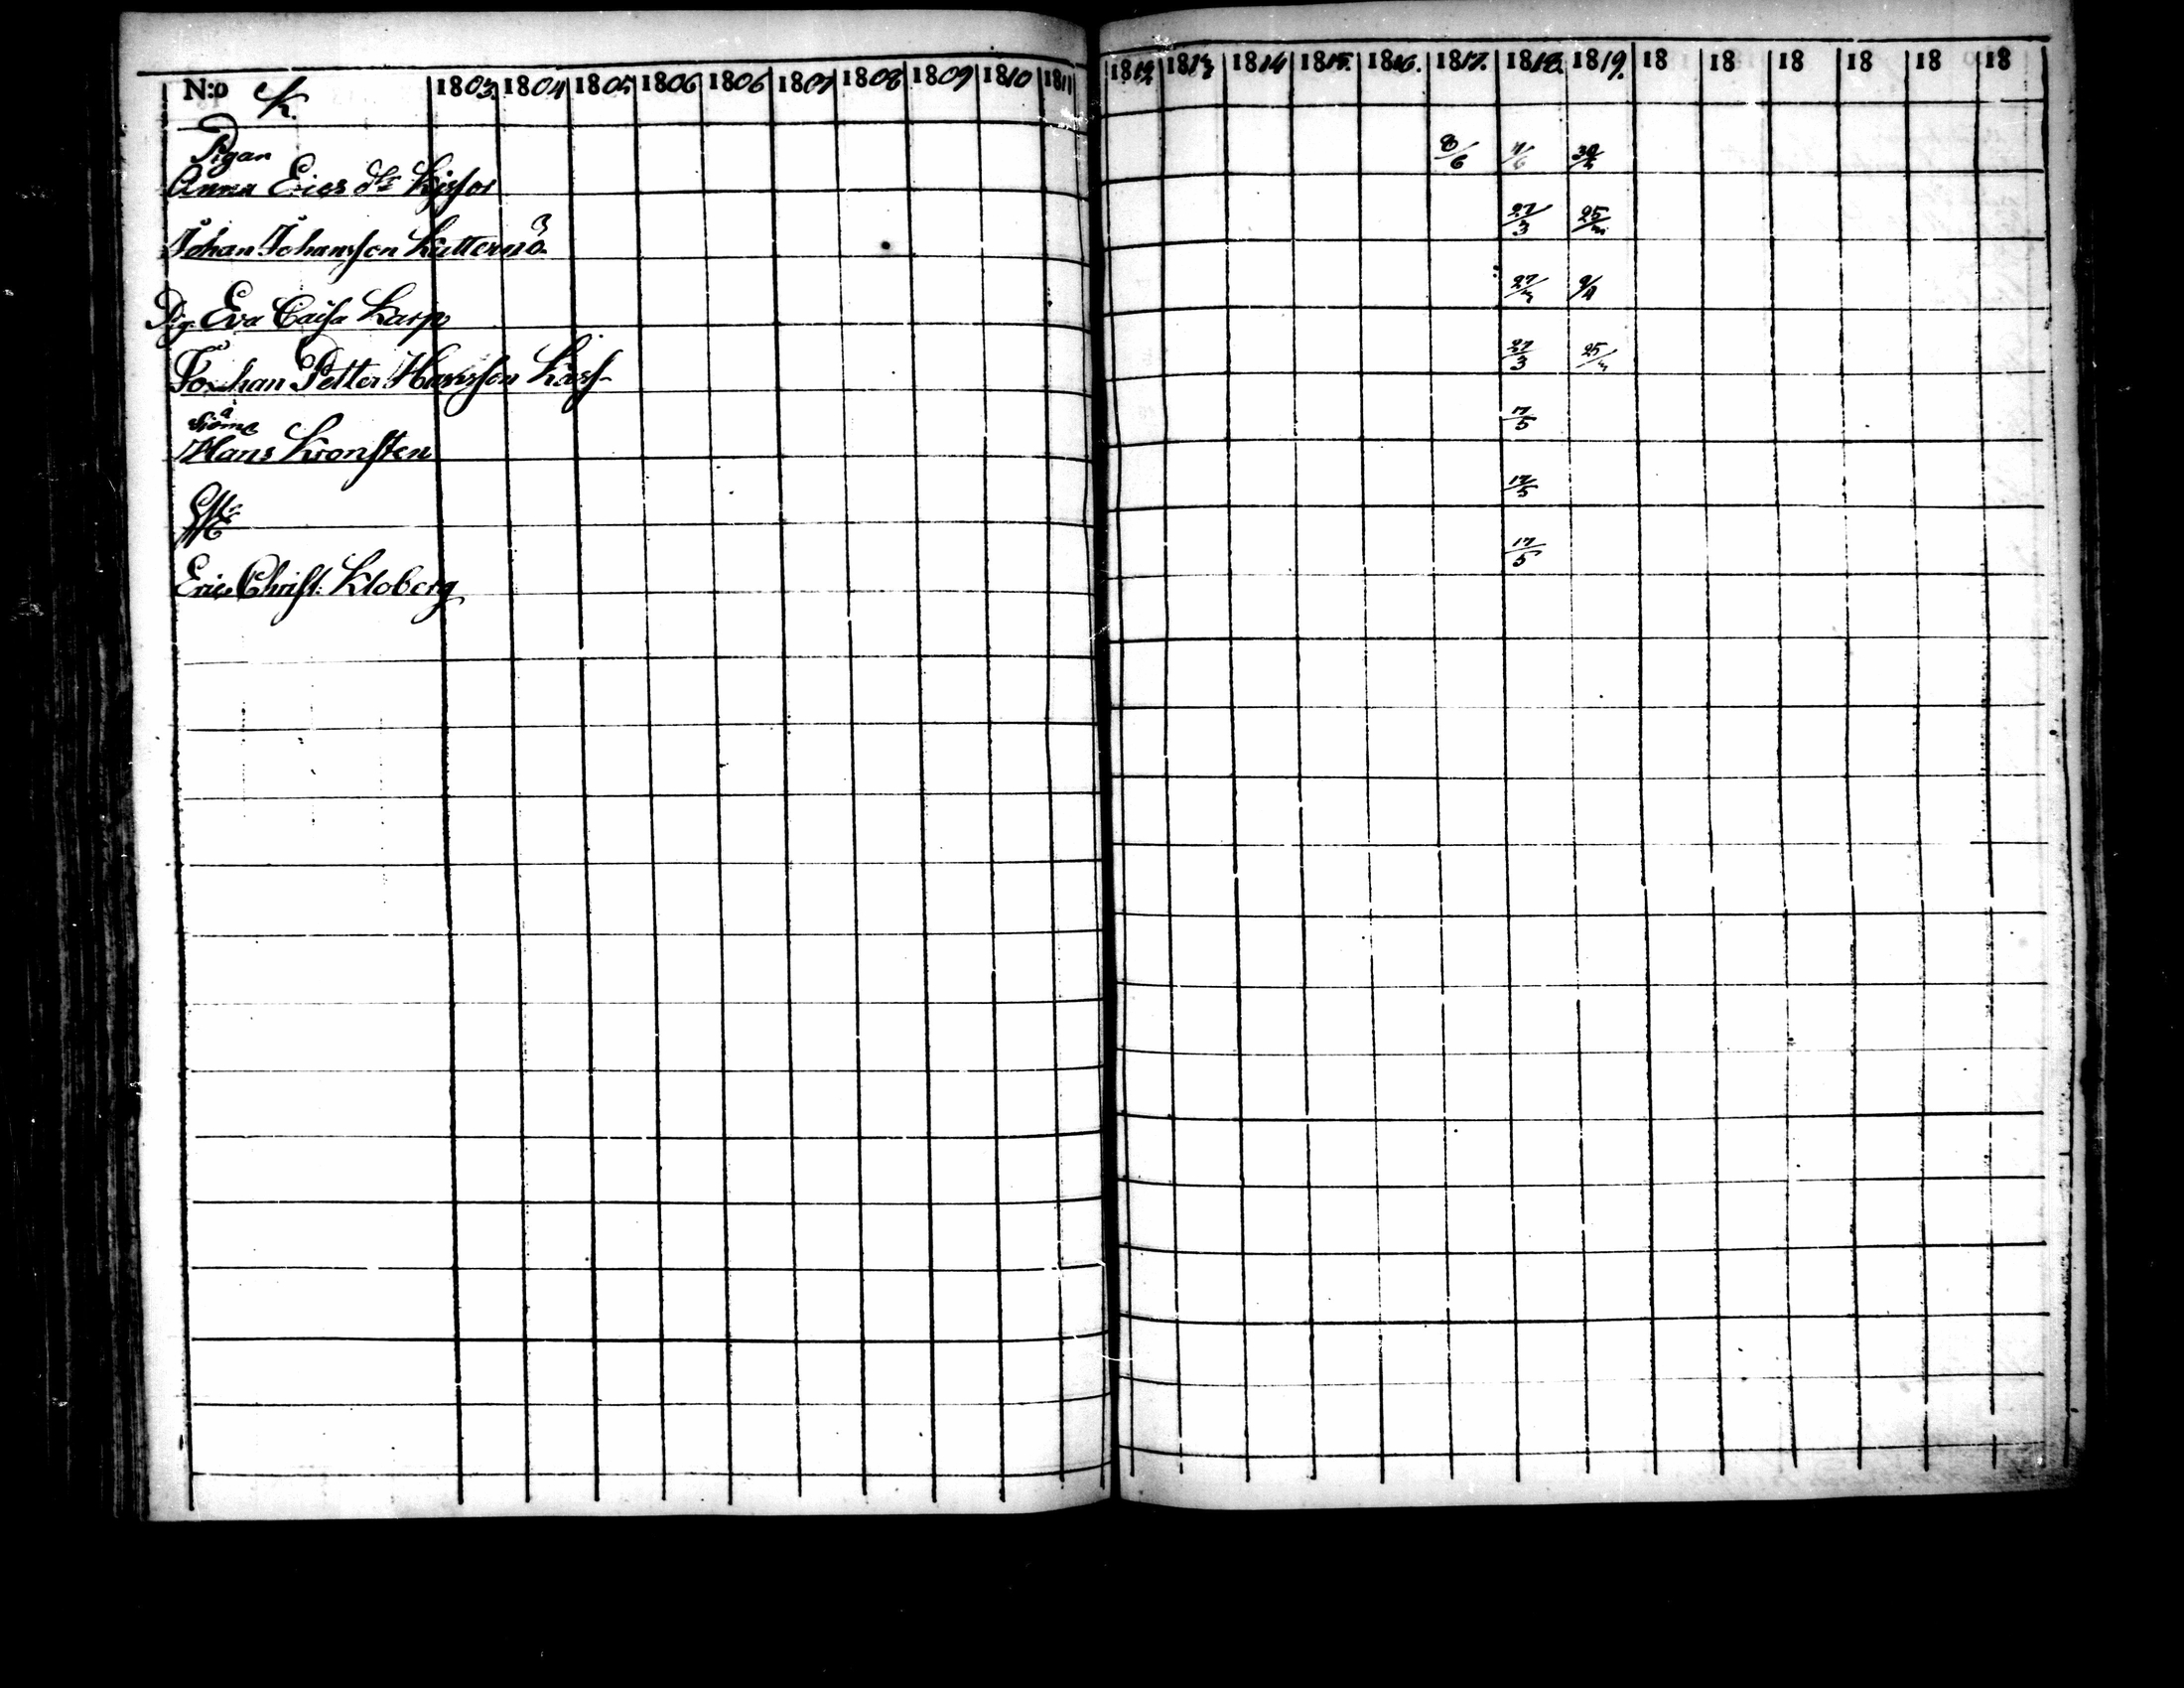 N:o K. 1803. 1804 1805 1806 1806 1807 1808 1809 1810 1811 1812 1813 1814 1815. 1816. 1817. 1818. 1819. 18 18 18 18 18 18
Pigan
Anna Erics dr 8/6 4/6 30/
Johan Johansson Kutternö 3 27/3 25/m
Pig. Eva Caisa Karp 27/m 9/4
Johan Petter Hansson 27/3 25/m
Hans Kronsten 17/5
17/5
Eric Christ. Kloberg 17/5